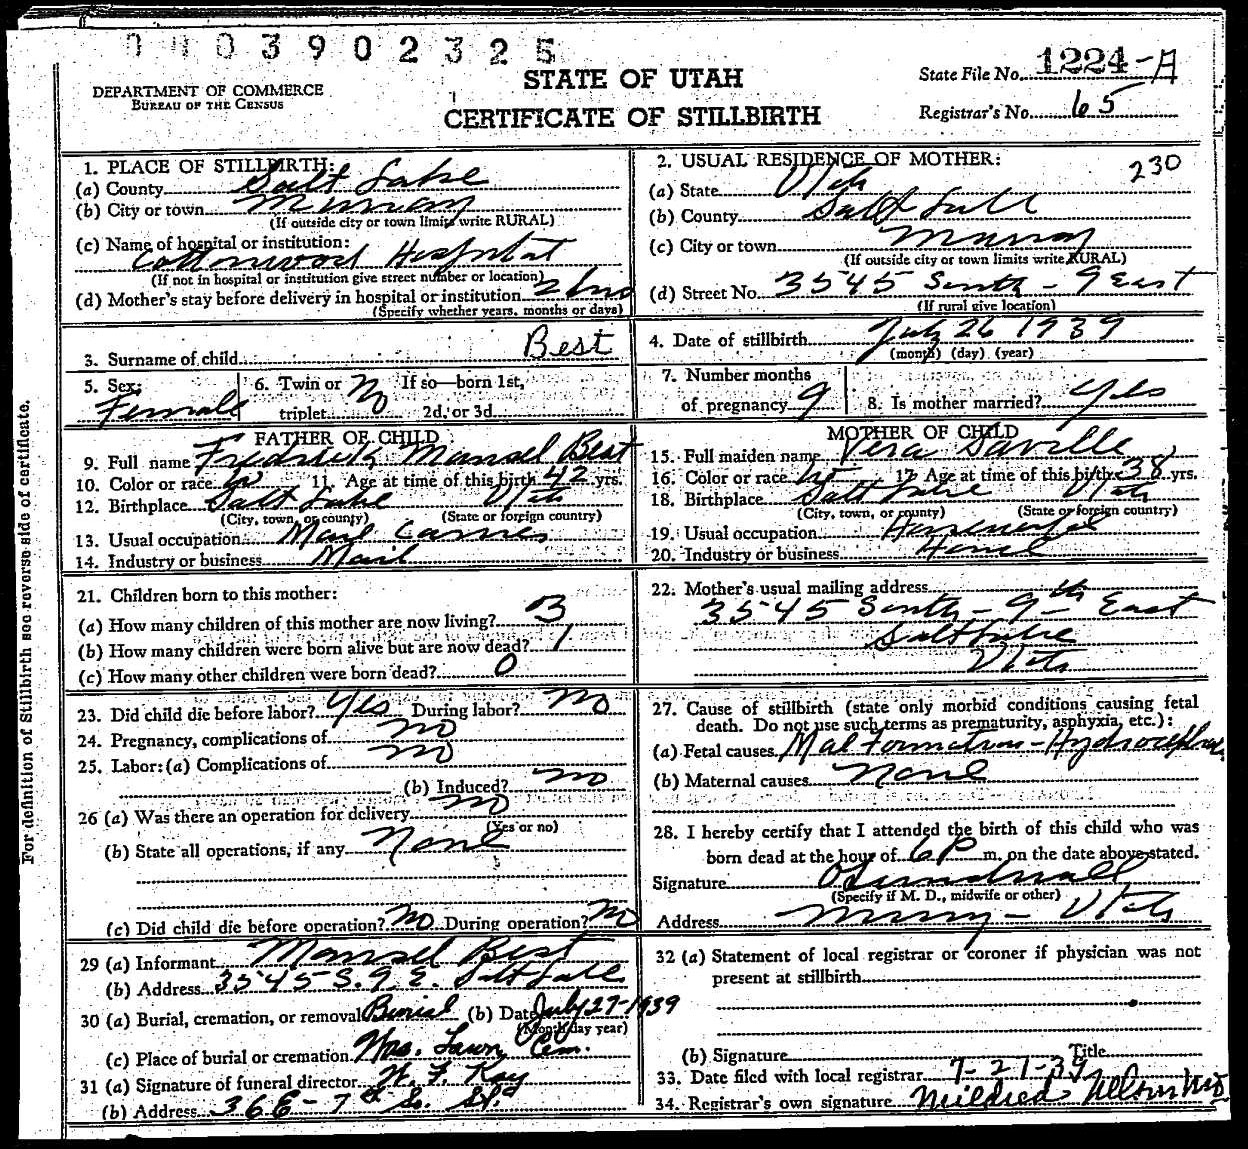 0403902325
STATE OF UTAH
CERTIFICATE OF STILLBIRTH
DEPARTMENT OF COMMERCE
BUREAU OF THE CENSUS
State File No. 1224-A
Registrar's No. 65
1. PLACE OF STILLBIRTH:
(a) County Salt Lake
(b) City or town Murray
(If outside city or town limits write RURAL)
(c) Name of hospital or institution:
Cottonwood Hospital
(If not in hospital or institution give street number or location)
(d) Mother's stay before delivery in hospital or institution 2 hrs
(Specify whether years, months or days)
2. USUAL RESIDENCE OF MOTHER: 230
(a) State Utah
(b) County Salt Lake
(c) City or town Murray
(If outside city or town limits write RURAL)
(d) Street No. 3545 South - 9 East
(If rural give location)
3. Surname of child Best
4. Date of stillbirth July 26 1939
(month) (day) (year)
5. Sex: Female
6. Twin or triplet No If so—born 1st, 2d, or 3d
7. Number months of pregnancy 9
8. Is mother married? Yes
FATHER OF CHILD
9. Full name Fredrick Mansel Best
10. Color or race W 11. Age at time of this birth 42 yrs.
12. Birthplace Salt Lake Utah
(City, town, or county) (State or foreign country)
13. Usual occupation Mail Carrier
14. Industry or business Mail
MOTHER OF CHILD
15. Full maiden name Vera Saville
16. Color or race W 17. Age at time of this birth 38 yrs.
18. Birthplace Salt Lake Utah
(City, town, or county) (State or foreign country)
19. Usual occupation Housewife
20. Industry or business Home
21. Children born to this mother:
(a) How many children of this mother are now living? 3
(b) How many children were born alive but are now dead? 1
(c) How many other children were born dead? 0
22. Mother's usual mailing address
3545 South - 9th East
Salt Lake
Utah
23. Did child die before labor? Yes During labor? No
24. Pregnancy, complications of no
25. Labor: (a) Complications of no
(b) Induced? no
26 (a) Was there an operation for delivery no
(Yes or no)
(b) State all operations, if any None
(c) Did child die before operation? No During operation? No
27. Cause of stillbirth (state only morbid conditions causing fetal
death. Do not use such terms as prematurity, asphyxia, etc.):
(a) Fetal causes Malformation - Hydrocephalus
(b) Maternal causes None
28. I hereby certify that I attended the birth of this child who was
born dead at the hour of 6 P m. on the date above stated.
Signature O Sundwall
(Specify if M. D., midwife or other)
Address Murray - Utah
29 (a) Informant Mansel Best
(b) Address 3545 S. 9 E. Salt Lake
30 (a) Burial, cremation, or removal Burial (b) Date July 27-1939
(Month day year)
(c) Place of burial or cremation Was. Lawn Cem.
31 (a) Signature of funeral director W. F. Kay
(b) Address 36 E - 7th So. St.
32 (a) Statement of local registrar or coroner if physician was not
present at stillbirth
(b) Signature Title
33. Date filed with local registrar 7-27-39
34. Registrar's own signature Mildred Nelson MD
For definition of Stillbirth see reverse side of certificate.